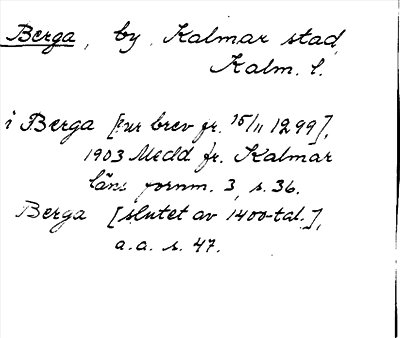 Berga, by, Kalmar stad,
Kalm. l.
i Berga [ur brev fr. 15/11 1299],
1903 Medd. fr. Kalmar
läns fornm. 3, s. 36.
Berga [slutet av 1400-tal.],
a.a. s. 47.